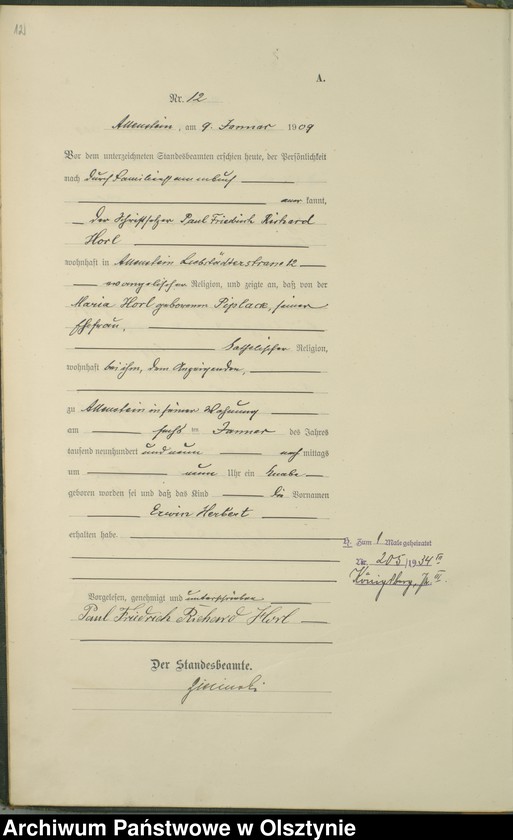 12
A.
Nr. 12
Allenstein, am 9. Januar 1909
Vor dem unterzeichneten Standesbeamten erschien heute, der Persönlichkeit
nach durch Familienstammbuch
aner kannt,
der Schriftsetzer Paul Friedrich Richard
Horl
wohnhaft in Allenstein Liebstädterstrasse 12
evangelischer Religion, und zeigte an, daß von der
Maria Horl geborenen Piplack, seiner
Ehefrau,
katholischer Religion,
wohnhaft bei ihm, dem Anzeigenden,
zu Allenstein in seiner Wohnung
am sechsten Januar des Jahres
tausend neunhundert und neun nach mittags
um neun Uhr ein Knabe
geboren worden sei und daß das Kind die Vornamen
Erwin Herbert
erhalten habe.
H. Zum 1 Male geheiratet
Nr. 205/1934 II
Königsberg, Pr. II.
Vorgelesen, genehmigt und unterschrieben
Paul Friedrich Richard Horl
Der Standesbeamte.
Archiwum Państwowe w Olsztynie